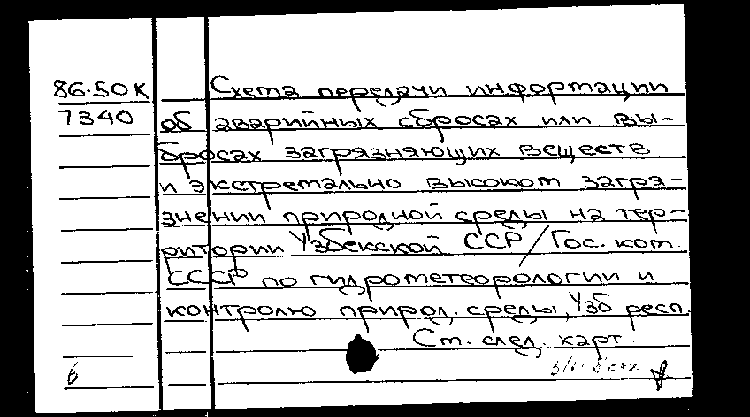 86-50К
7340
Схема передачи информации
об аварийных сбросах или вы-
бросах загрязняющих веществ
и экстремально высоком загря-
знении природной среды на тер-
ритории Узбекской ССР / Гос. ком.
СССР по гидрометеорологии и
контролю природ. среды, Узб респ.
См. след. карт.
б